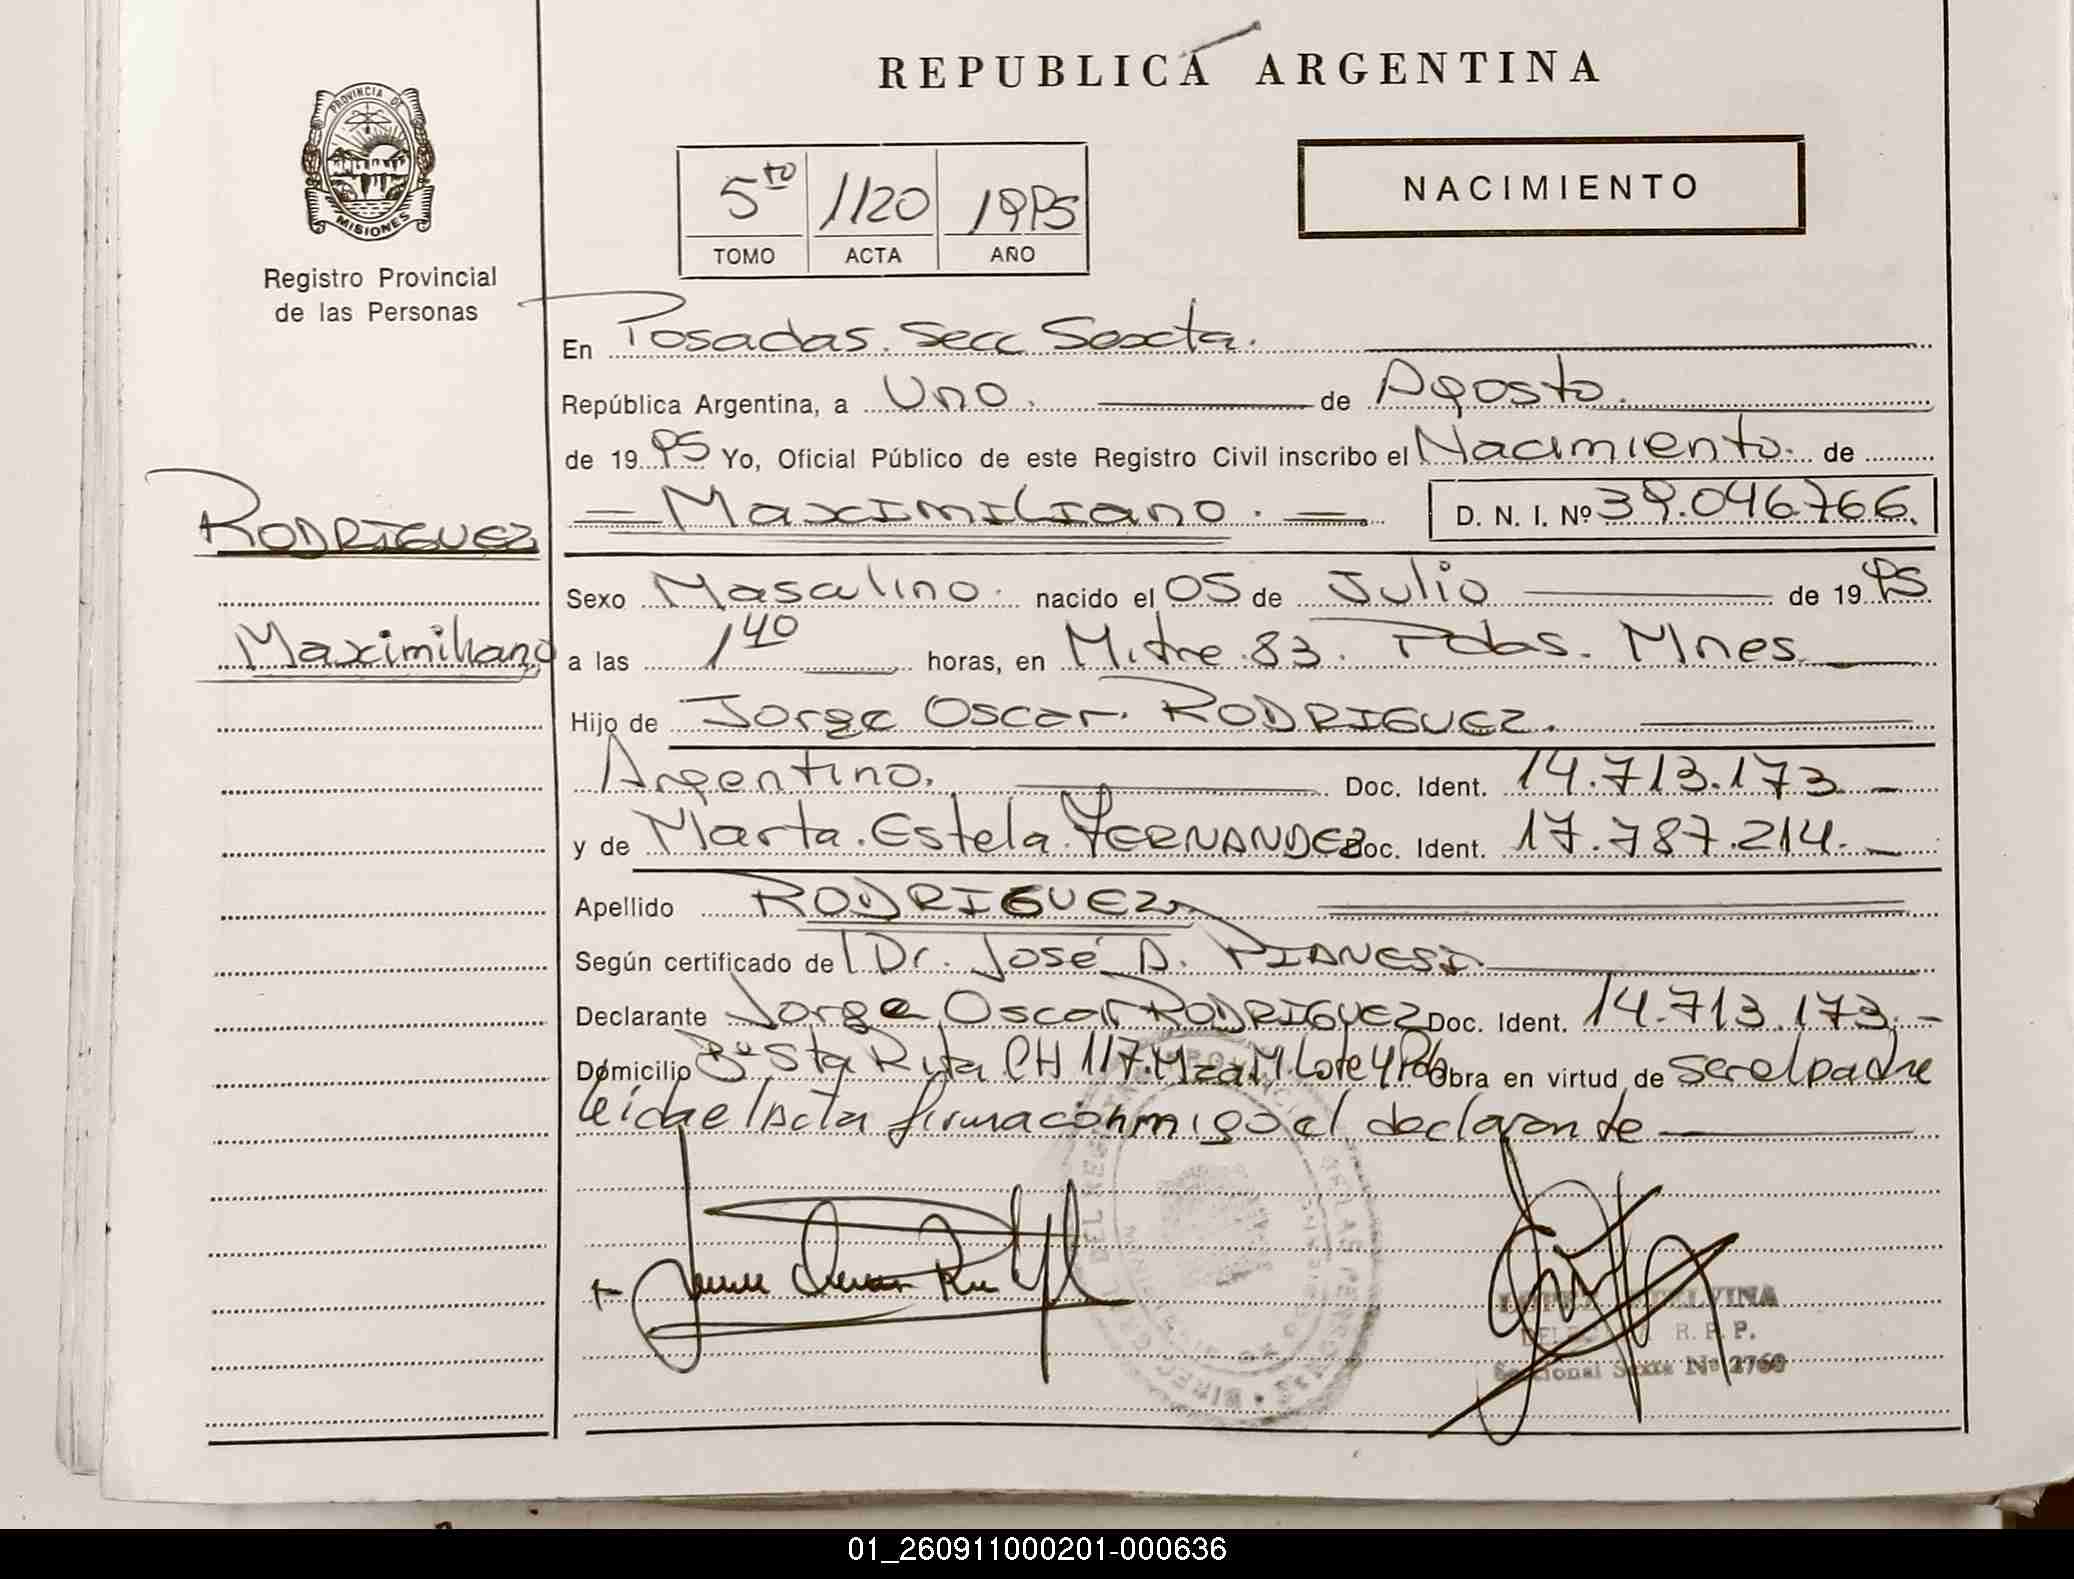 REPUBLICA ARGENTINA
PROVINCIA DE
MISIONES
Registro Provincial
de las Personas
5to 1120 1995
TOMO ACTA AÑO
NACIMIENTO
En Posadas. Secc Sexta.
República Argentina, a Uno. de Agosto.
de 1995 Yo, Oficial Público de este Registro Civil inscribo el Nacimiento. de
RODRIGUEZ
Maximiliano
Maximiliano. D. N. I. Nº 39.046.766.
Sexo Masculino. nacido el 05 de Julio de 1995
a las 1 40 horas, en Mitre 83. Pdas. Mnes.
Hijo de Jorge Oscar. RODRIGUEZ.
Argentino. Doc. Ident. 14.713.173
y de Marta. Estela. FERNANDEZ Doc. Ident. 17.787.214.
Apellido RODRIGUEZ
Según certificado de Dr. José A. PIANESI
Declarante Jorge Oscar RODRIGUEZ Doc. Ident. 14.713.173.
Domicilio Bº Sta Rita CH 117. Mza M. Lote 4 Pdas Obra en virtud de ser el padre
leida el Acta firma conmigo el declarante
R. P. P.
Seccional Sexta Nº 2760
01_260911000201-000636